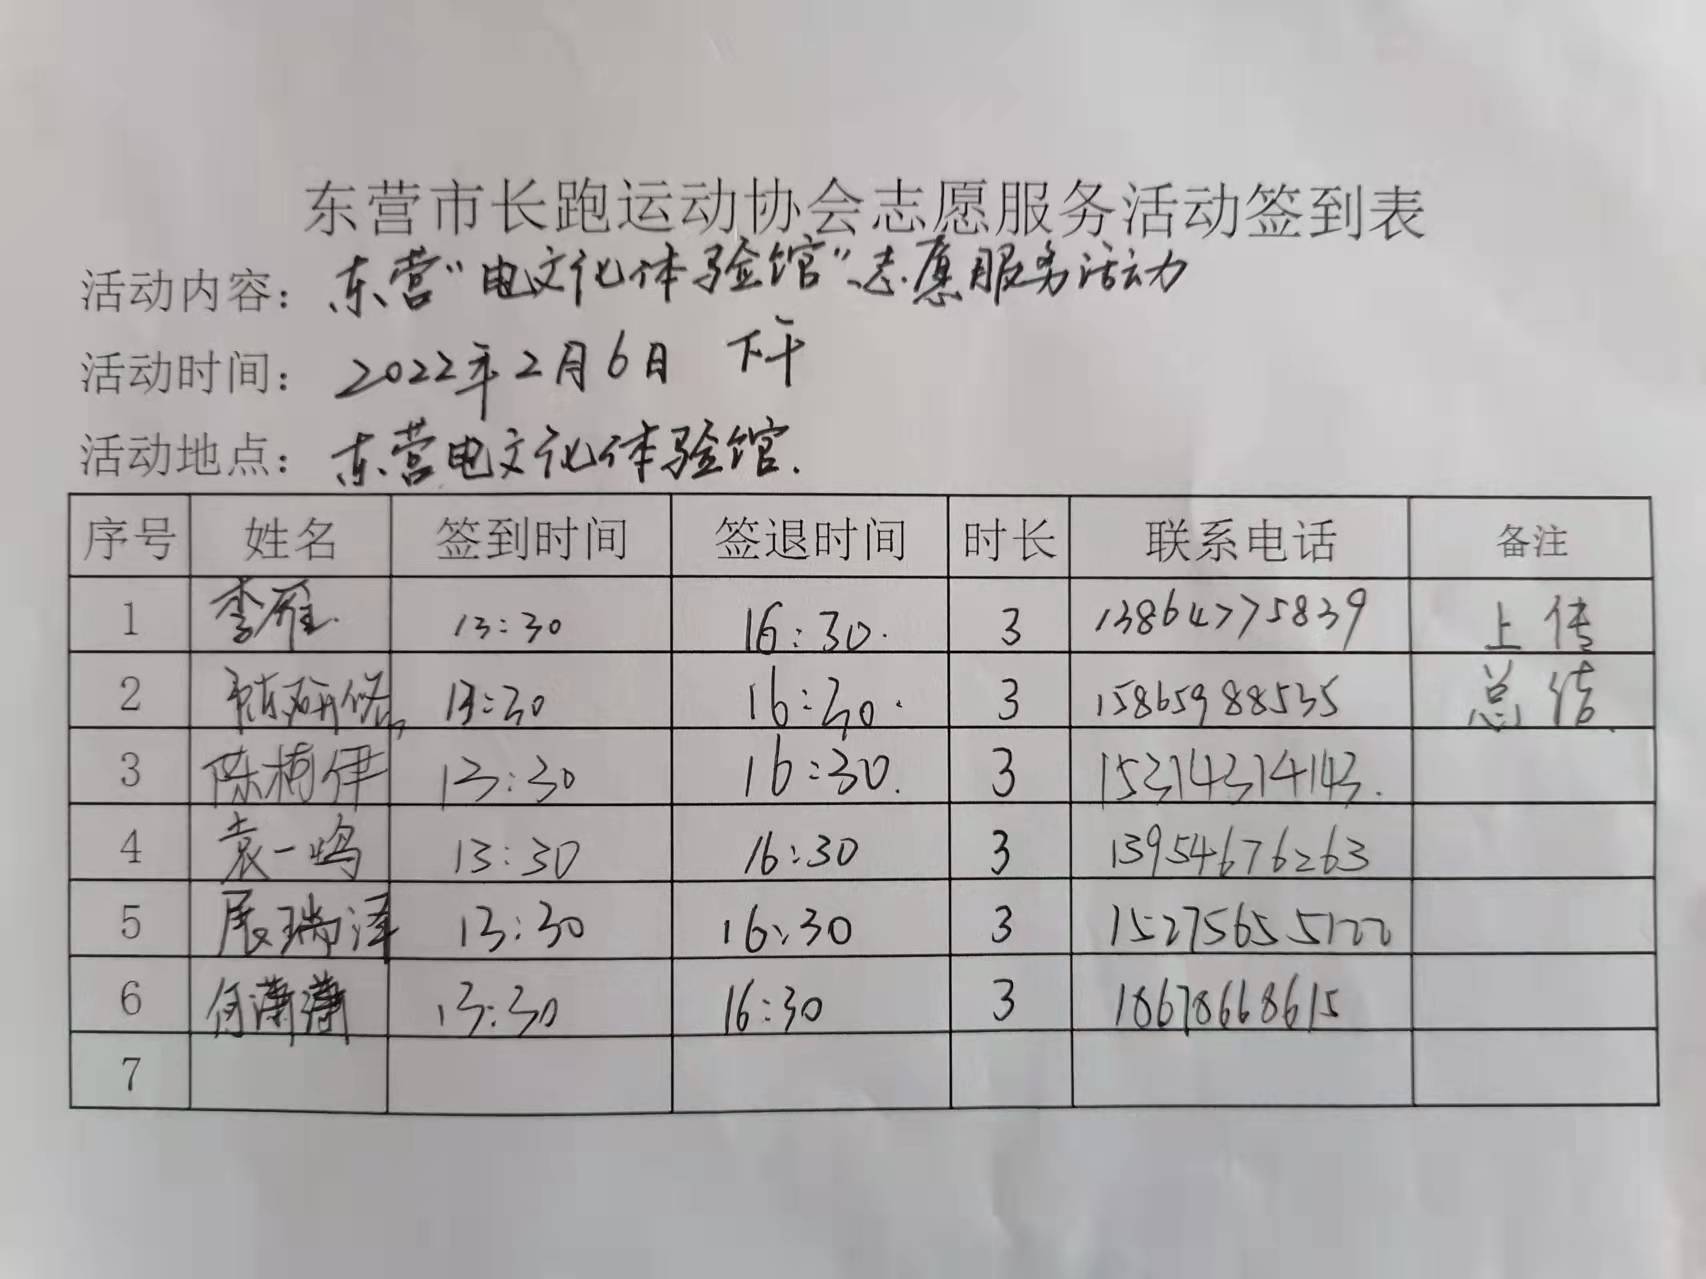 东营市长跑运动协会志愿服务活动签到表
活动内容： 东营“电文化体验馆”志愿服务活动
活动时间： 2022年2月6日 下午
活动地点： 东营电文化体验馆.
序号 姓名 签到时间 签退时间 时长 联系电话 备注
1 李雁 13:30 16:30. 3 13864775839 上传
2 13:30 16:30. 3 15865988535 总结
3 陈楠伊 13:30 16:30. 3 15314314143.
4 袁一鸣 13:30 16:30 3 13954676263
5 展瑞泽 13:30 16:30 3 15275655122
6 潇潇 13:30 16:30 3 18678668615
7